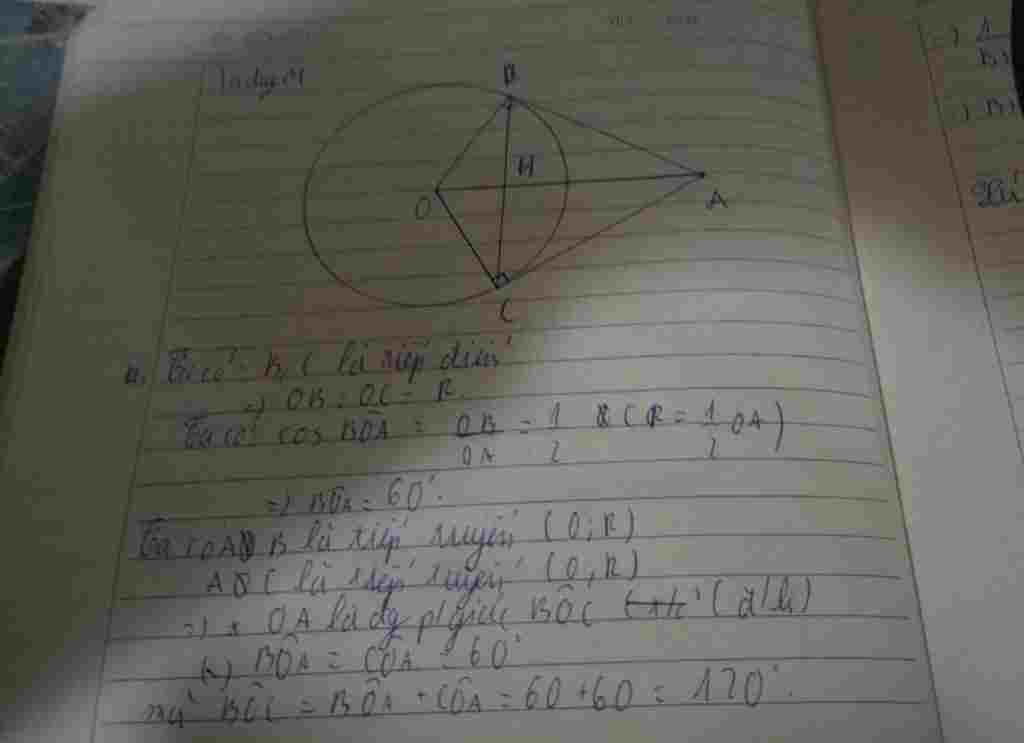 B
H
O
A
C
a, Ta có: B, C là tiếp điểm
=> OB = OC = R
Ta có: cos BÔA = OB/OA = 1/2 (R = 1/2 OA)
=> BÔA = 60°.
Ta có AB là tiếp tuyến (O; R)
AC là tiếp tuyến (O, R)
=> OA là đg p/giác BÔC (đ/l)
BÔA = CÔA = 60°
BÔC = BÔA + CÔA = 60 + 60 = 120°.